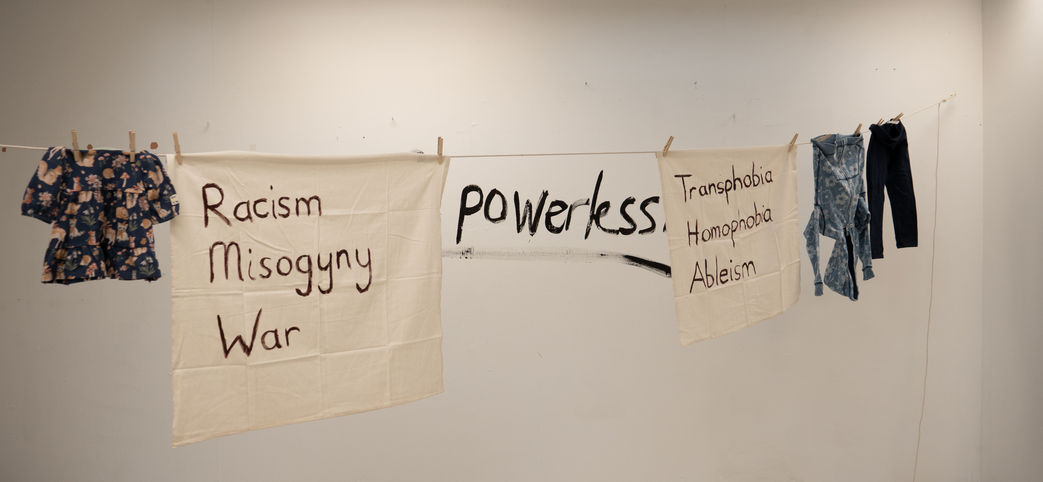 Racism
Misogyny
War
powerless
Transphobia
Homophobia
Ableism